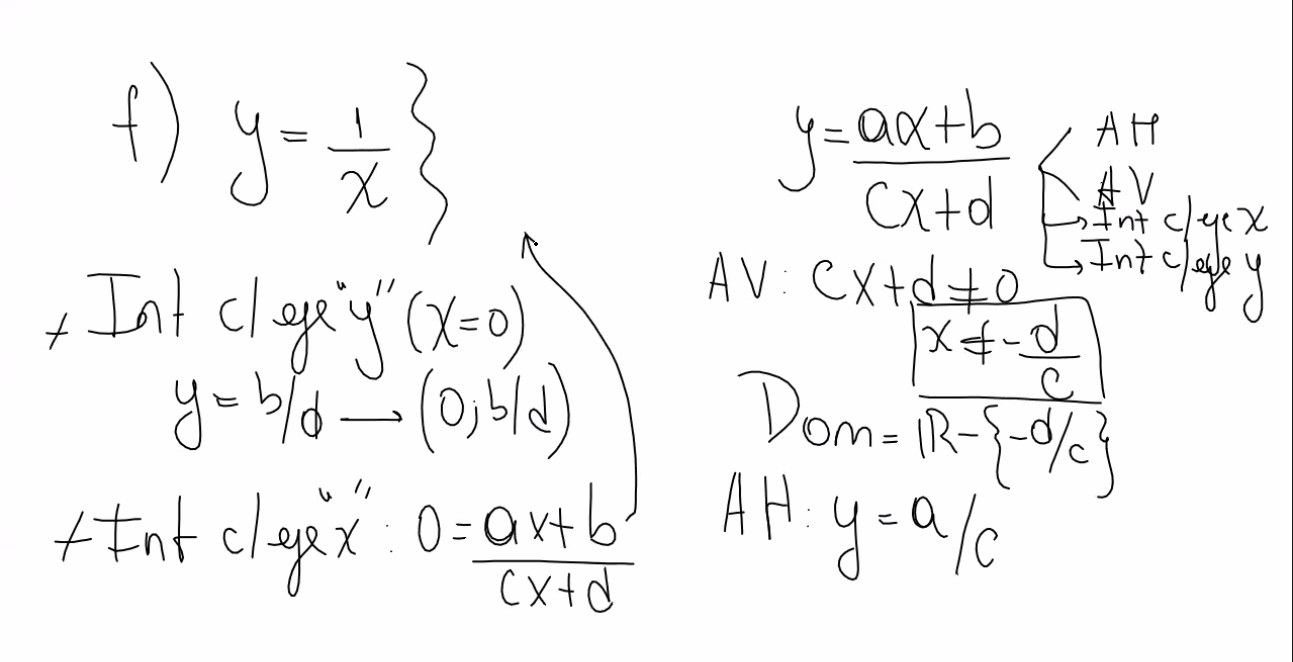 f) y = 1/x }
+ Int c/eje "y" (x=0)
y = b/d → (0; b/d)
+ Int c/eje "x" : 0 = (ax+b)/(cx+d)
y = (ax+b)/(cx+d)
AH
AV
Int c/eje x
Int c/eje y
AV: cx+d ≠ 0
x ≠ -d/c
Dom = ℝ - {-d/c}
AH: y = a/c